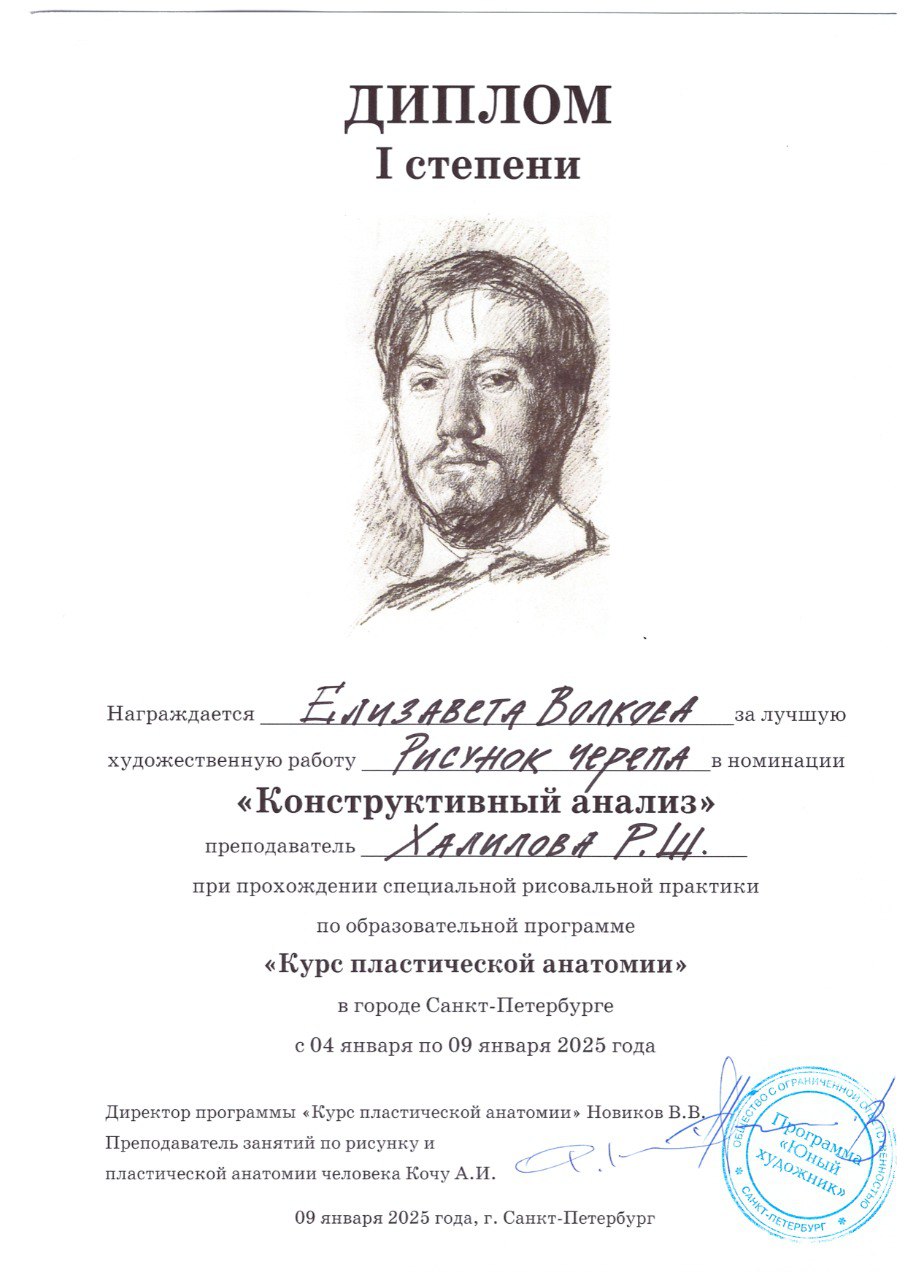 ДИПЛОМ
I степени
Награждается Елизавета Волкова за лучшую
художественную работу Рисунок черепа в номинации
«Конструктивный анализ»
преподаватель Халилова Р.Ш.
при прохождении специальной рисовальной практики
по образовательной программе
«Курс пластической анатомии»
в городе Санкт-Петербурге
с 04 января по 09 января 2025 года
Директор программы «Курс пластической анатомии» Новиков В.В.
Преподаватель занятий по рисунку и
пластической анатомии человека Кочу А.И.
09 января 2025 года, г. Санкт-Петербург
ОБЩЕСТВО С ОГРАНИЧЕННОЙ ОТВЕТСТВЕННОСТЬЮ
Программа
«Юный
художник»
* САНКТ-ПЕТЕРБУРГ *